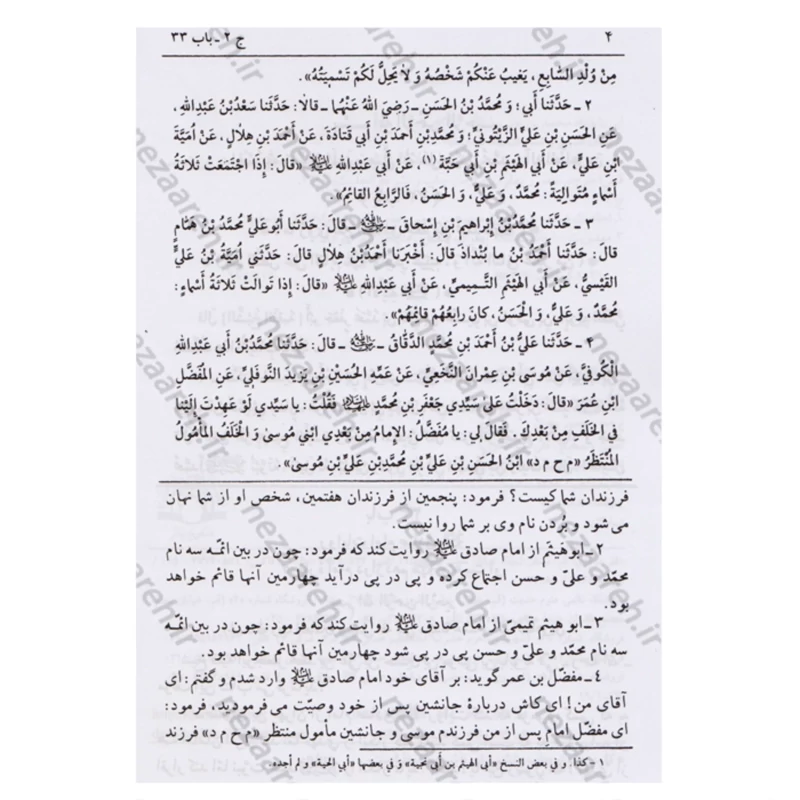 ۴ ج ۲ ـ باب ۳۳
مِنْ وُلْدِ السّابِعِ، يَغيبُ عَنْكُمْ شَخْصُهُ وَ لا يَحِلُّ لَكُمْ تَسْمِيَتُهُ».
۲ ـ حَدَّثَنا أَبي؛ وَ مُحَمَّدُ بْنُ الحَسَنِ ـ رَضِيَ اللهُ عَنْهُما ـ قالا: حَدَّثَنا سَعْدُ بْنُ عَبْدِاللهِ،
عَنِ الحَسَنِ بْنِ عَلِيٍّ الزَّيْتُونيِّ؛ وَ مُحَمَّدِبْنِ أَحْمَدَ بْنِ أَبي قَتادَةَ، عَنْ أَحْمَدَ بْنِ هِلالٍ، عَنْ اُمَيَّةَ
ابْنِ عَليٍّ، عَنْ أَبي الهَيْثَمِ بْنِ أَبي حَبَّةَ (۱)، عَنْ أَبي عَبْدِاللهِ عليه السلام «قالَ: إِذَا اجْتَمَعَتْ ثَلاثَةُ
أَسْماءٍ مُتَوالِيَةً: مُحَمَّدٌ، وَ عَليٌّ، وَ الحَسَنُ، فَالرّابِعُ القائِمُ».
۳ ـ حَدَّثَنا مُحَمَّدُبْنُ إِبْراهيمَ بْنِ إِسْحاقَ ـ رضي الله عنه ـ قالَ: حَدَّثَنا أَبُوعَليٍّ مُحَمَّدُ بْنُ هَمّامٍ
قالَ: حَدَّثَنا أَحْمَدُ بْنُ ما بُنْداذَ قالَ: أَخْبَرَنا أَحْمَدُبْنُ هِلالٍ قالَ: حَدَّثَني اُمَيَّةُ بْنُ عَليٍّ
القَيْسيُّ، عَنْ أَبي الهَيْثَمِ التَّميميِّ، عَنْ أَبي عَبْدِاللهِ عليه السلام «قالَ: إِذا تَوالَتْ ثَلاثَةُ أَسْماءٍ:
مُحَمَّدٌ، وَ عَليٌّ، وَ الحَسَنُ، كانَ رابِعُهُمْ قائِمُهُمْ».
۴ ـ حَدَّثَنا عَليُّ بْنُ أَحْمَدَ بْنِ مُحَمَّدٍ الدَّقّاقُ ـ رضي الله عنه ـ قالَ: حَدَّثَنا مُحَمَّدُبْنُ أَبي عَبْدِاللهِ
الْكُوفيُّ، عَنْ مُوسَى بْنِ عِمْرانَ النَّخَعيِّ، عَنْ عَمِّهِ الحُسَيْنِ بْنِ يَزيدَ النَّوفَليِّ، عَنِ المُفَضَّلِ
ابْنِ عُمَرَ «قالَ: دَخَلْتُ عَلى سَيِّدي جَعْفَرِ بْنِ مُحَمَّدٍ عليهما السلام فَقُلْتُ: يا سَيِّدي لَوْ عَهِدْتَ إِلَيْنا
في الخَلَفِ مِنْ بَعْدِكَ. فَقالَ لي: يا مُفَضَّلُ: الإِمامُ مِنْ بَعْدي ابْني مُوسى وَ الخَلَفُ المَأْمُولُ
المُنْتَظَرُ «م ح م د» ابْنُ الحَسَنِ بْنِ عَليِّ بْنِ مُحَمَّدِبْنِ عَليِّ بْنِ مُوسىٰ».
فرزندان شما کیست؟ فرمود: پنجمین از فرزندان هفتمین، شخص او از شما نهان
می شود و بُردن نام وی بر شما روا نیست.
۲ ـ ابو هیثم از امام صادق علیه السلام روایت کند که فرمود: چون در بین ائمّه سه نام
محمّد و علیّ و حسن اجتماع کرده و پی در پی درآید چهارمین آنها قائم خواهد
بود.
۳ ـ ابو هیثم تمیمیّ از امام صادق علیه السلام روایت کند که فرمود: چون در بین ائمّه
سه نام محمّد و علیّ و حسن پی در پی شود چهارمین آنها قائم خواهد بود.
۴ ـ مفضّل بن عمر گوید: بر آقای خود امام صادق علیه السلام وارد شدم و گفتم: ای
آقای من! ای کاش دربارهٔ جانشین پس از خود وصیّت می فرمودید، فرمود:
ای مفضّل امام پس از من فرزندم موسی و جانشین مأمول منتظر «م ح م د» فرزند
۱ ـ كذا. و في بعض النسخ «أبي الهيثم بن أبي محبة» و في بعضها «أبي الحية» و لم أجده.
nezaareh.ir